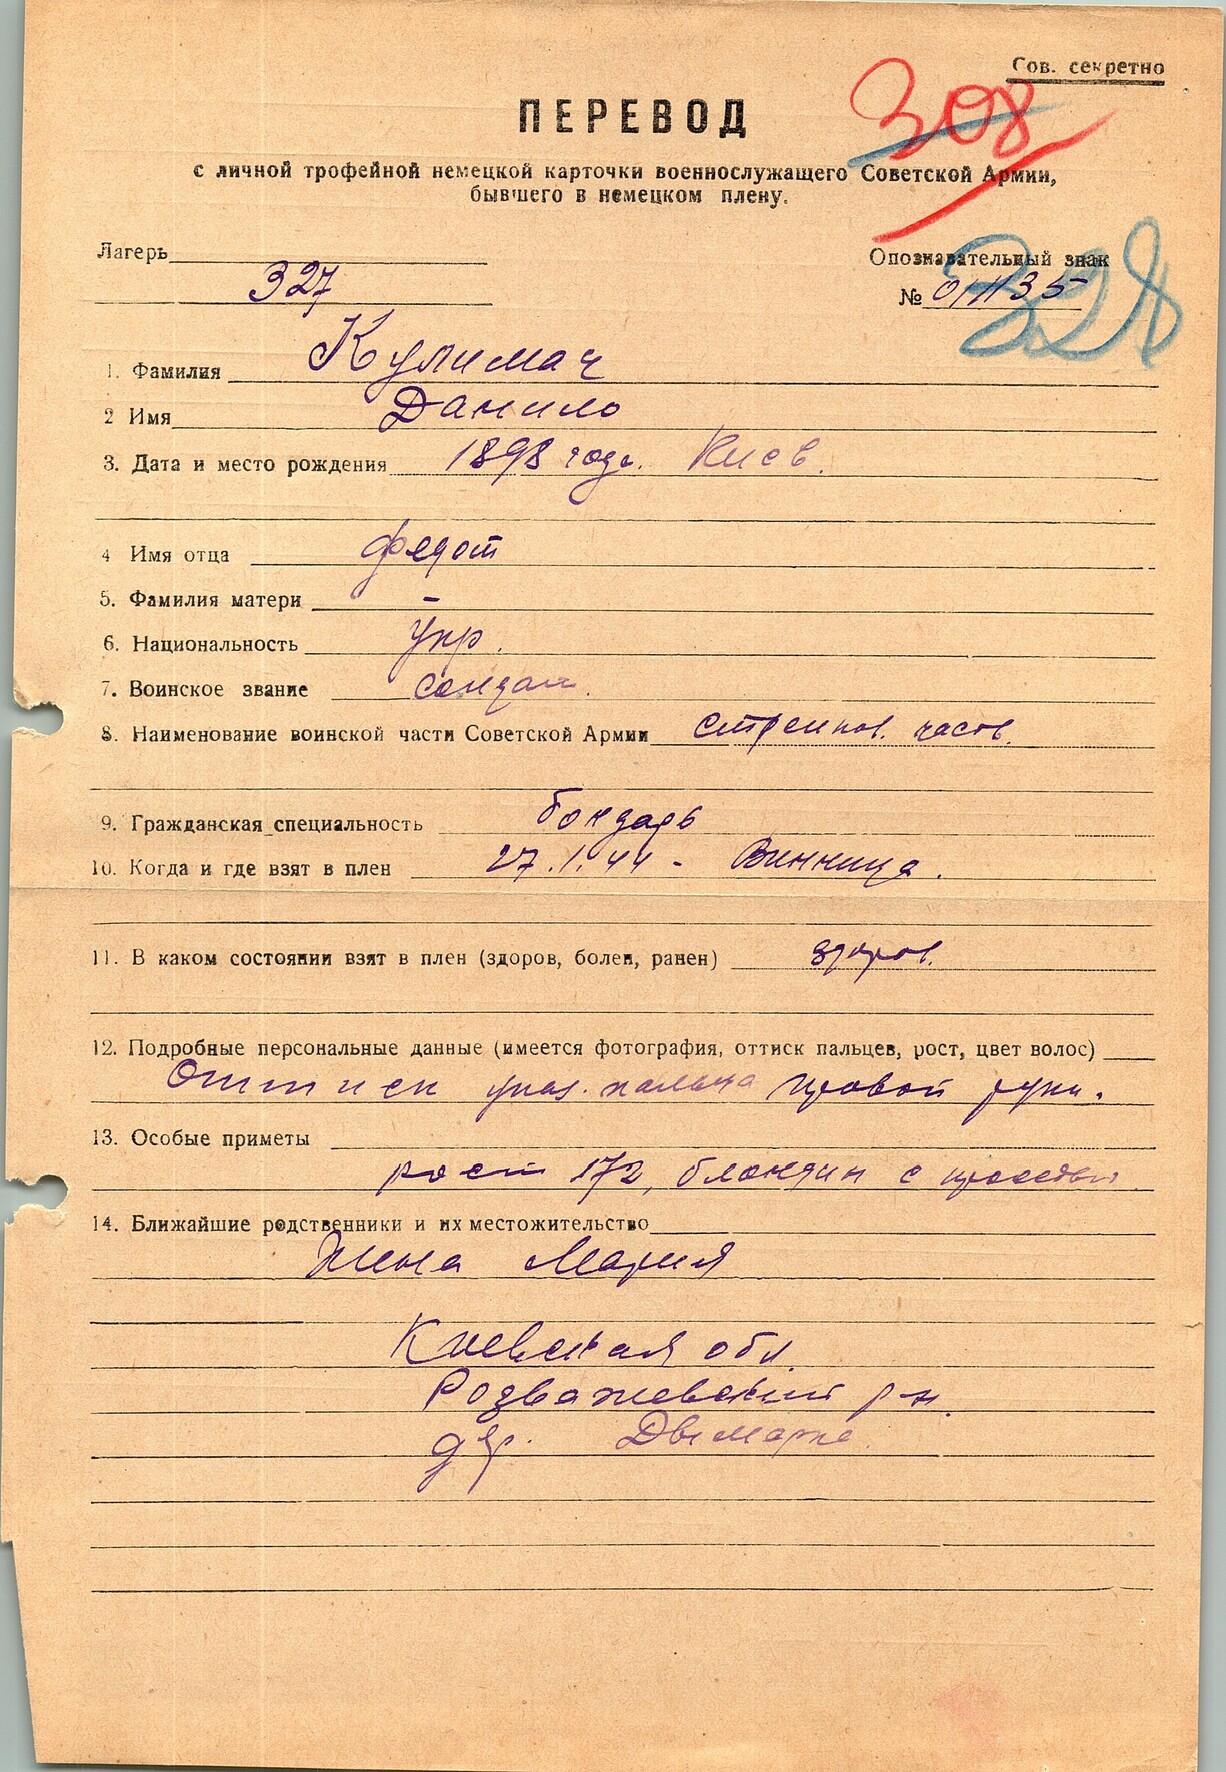 Сов. секретно
308
ПЕРЕВОД
с личной трофейной немецкой карточки военнослужащего Советской Армии,
бывшего в немецком плену.
Лагерь
Опознавательный знак
327
№ 01135
328
1. Фамилия Кулимач
2 Имя Данило
3. Дата и место рождения 1898 года. Киев.
4 Имя отца Федот
5. Фамилия матери –
6. Национальность Укр.
7. Воинское звание солдат.
8. Наименование воинской части Советской Армии стрелков. часть.
9. Гражданская специальность бондарь
10. Когда и где взят в плен 27.1.44 - Винница.
11. В каком состоянии взят в плен (здоров, болен, ранен) здоров.
12. Подробные персональные данные (имеется фотография, оттиск пальцев, рост, цвет волос)
Оттиск указ. пальца правой руки.
13. Особые приметы
рост 172, блондин с проседью
14. Ближайшие родственники и их местожительство
Жена Мария
Киевская обл.
Розважевский р-н.
дер.